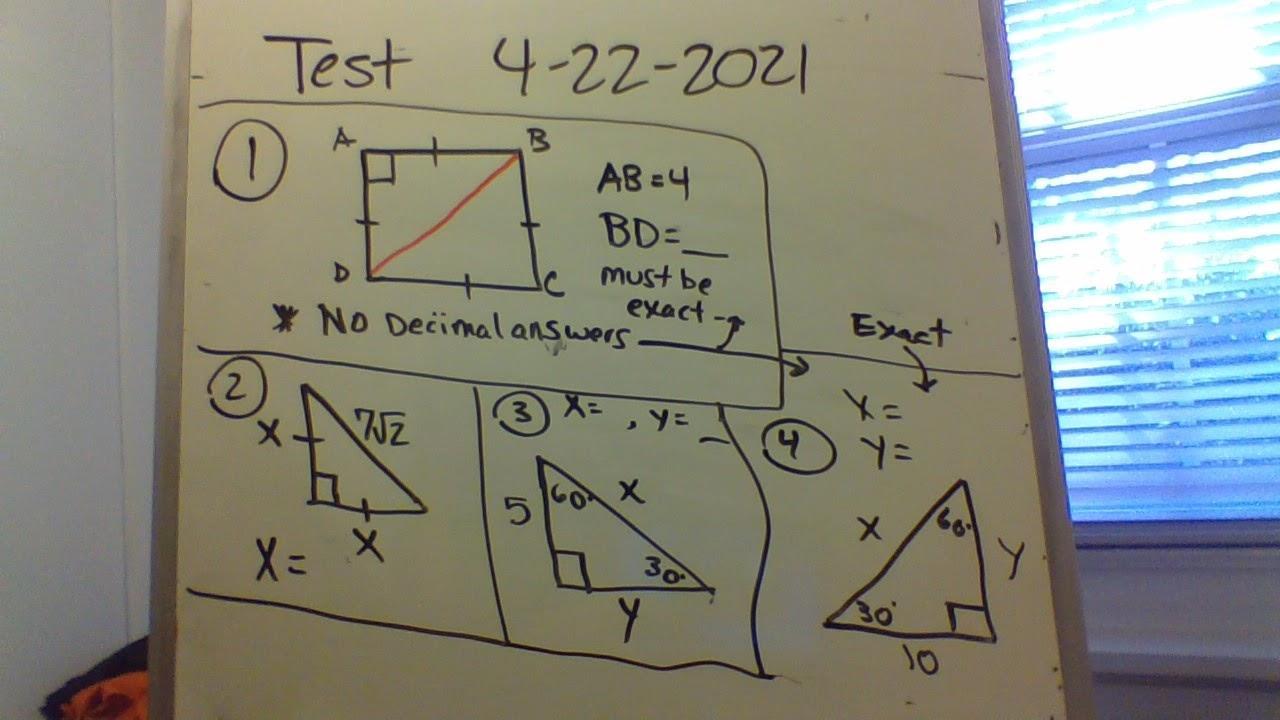 Test 4-22-2021
1
A B
D C
AB=4
BD=__
must be
exact
* NO Decimal answers
2
x 7√2
x
X=
3 X= , y= _
5 60° x
30°
y
Exact
4
X=
Y=
x 60° y
30°
10